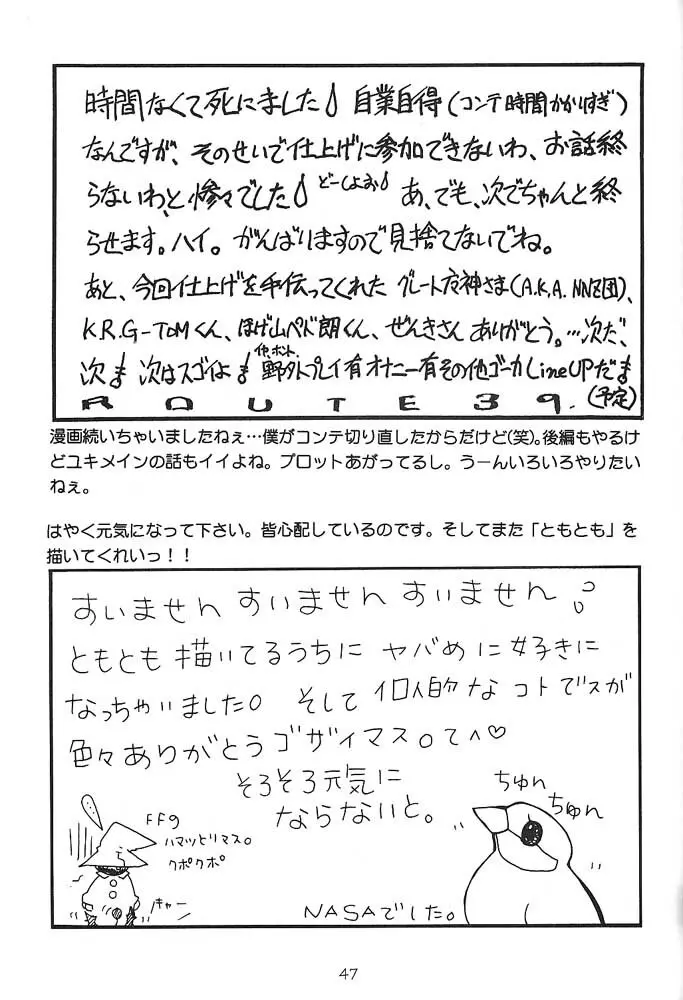 時間なくて死にました 自業自得(コンテ時間かかりすぎ)
なんですが、そのせいで仕上げに参加できないわ、お話終
らないわ、と惨々でした どーしよお
あ、でも、次でちゃんと終
らせます。ハイ。がんばりますので見捨てないでね。
あと、今回仕上げを手伝ってくれた グレート疫神さま(A.K.A. NNZ団)、
K.R.G-TOMくん、ほげ山ペド朗くん、ぜんきさん ありがとう。…次だ、
次も 次はスゴイよ 野外プレイ有オナニー有その他ゴーカLineUPだ
(予定)
ROUTE39.
漫画続いちゃいましたねぇ…僕がコンテ切り直したからだけど(笑)。後編もやるけ
どユキメインの話もイイよね。プロットあがってるし。うーんいろいろやりたい
ねぇ。
はやく元気になって下さい。皆心配しているのです。そしてまた「ともとも」を
描いてくれいっ!!
すいません すいません すいません
ともとも描いてるうちに ヤバめに好きに
なっちゃいました。 そして 個人的な コトでスが
色々ありがとうゴザイマス。て^♡
そろそろ元気に
ならないと。
ちゅん
ちゅん
FFの
ハマッとりマス。
クポクポ
キャー
NASAでした。
47